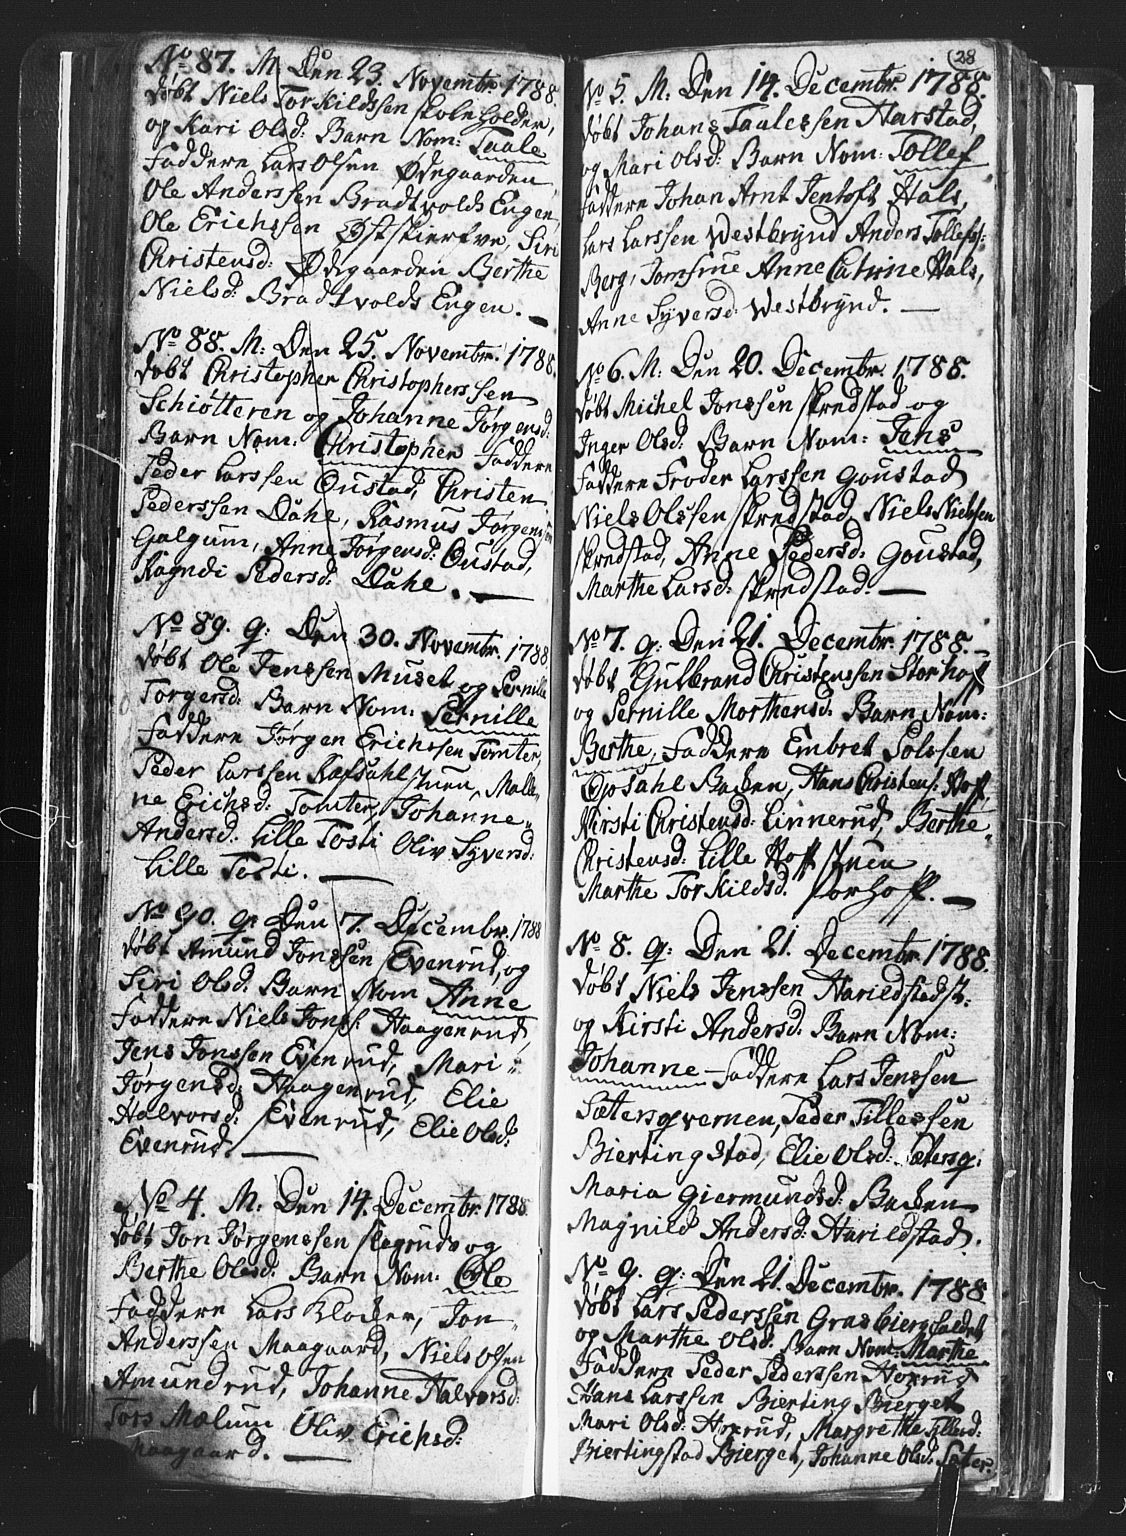 No 87. M. Den 23. Novembr. 1788.
døbt Niels Torkildssen skoleholder,
og Kari Olsd: Barn Nom: Taale
Faddere Lars Olsen Ødegaarden,
Ole Anderssen Bradtvolds Engen,
Ole Erichssen Østskierkve, Siri
Christensd: Ødegaarden Berthe
Nielsd: Bradtvolds Engen. —
No 88. M: Den 25. Novembr. 1788.
døbt Christopher Christopherssen
Schiötteren og Johanne Jørgensd:
Barn Nom: Christopher Faddere
Peder Larssen Oustad, Christen
Pederssen Dahe, Rasmus Jørgenssen
Galgum, Anne Jørgensd: Oustad,
Ragndi Pedersd: Dahe. —
No 89. q: Den 30. Novembr. 1788.
døbt Ole Jenssen Musel og Pernille
Torgersd: Barn Nom: Pernille
Faddere Jørgen Erichssen Tomter,
Peder Larssen Rafsahl stuen, Malle-
ne Erichsd: Tomter, Johanne
Andersd: Lille Tosti Oliv Syversd:
Lille Tosti. —
No 90. q. Den 7. Decembr. 1788
døbt Amund Jonssen Evenrud, og
Siri Olsd: Barn Nom Anne
Faddere Niels Jonss: Haagenrud,
Jens Jonssen Evenrud, Mari
Jørgensd: Haagenrud, Elie
Halvorsd: Evenrud, Elie Olsd:
Evenrud. —
No 4. M: Den 14. Decembr. 1788
døbt Jon Jørgenssen skegruds og
Berthe Olesd: Barn Nom: Ole
Faddere Lars Klocker, Jon
Anderssen Maagaard, Niels Olsen
Amundrud, Johanne Halvorsd:
Tors Mælum Oliv Erichsd:
Maagaard. —
(28
No 5. M: Den 14. Decembr. 1788.
døbt Johans Taalessen Harstad,
og Mari Olsd: Barn Nom: Tollef
Faddere Johan Arnt Jentoft Hals,
Lars Larssen Westbrynd Anders Tollefss:
Berg, Jomfrue Anne Catrine Hals,
Anne Syversd: Westbrynd. —
No 6. M: Den 20. Decembr. 1788.
døbt Michel Jonssen skredstad og
Inger Olsd: Barn Nom: Jens
Faddere Froder Larssen Goustad
Niels Olssen skredstad, Niels Nielssen
skredstad, Anne Pedersd: Goustad,
Marthe Larsd: skredstad. —
No 7. q: Den 21. Decembr. 1788. —
døbt Gulbrand Christenssen Storhoff
og Pernille Morthensd: Barn Nom:
Berthe, Faddere Embret Polssen
Opsahl Baden, Hans Christens: Hoff,
Kirsti Christensd: Linnerud, Berthe
Christensd: Lille Hoff stuen
Marthe Torkildsd: storhoff. —
No 8. q: Den 21. Decembr. 1788.
døbt Niels Jenssen Harildstadst:
og Kirsti Andersd: Barn Nom:
Johanne — Faddere Lars Jenssen
Sætersqvernen, Peder Tillessen
Biertingstad, Elie Olsd: Sætersq:
Maria Giermundsd: Baden
Magnild Andersd: Harildstad.
No 9. q: Den 21. Decembr. 1788
døbt Lars Pederssen Grasbiergfaldet
og Marthe Olsd: Barn Nom: Marthe
Faddere Peder Pederssen Hoxrud
Hans Larssen Bierting Bierget
Mari Olsd: Hoxrud, Margrethe Tillesd:
Biertingstad Bierget, Johanne Olsd: Sæter.